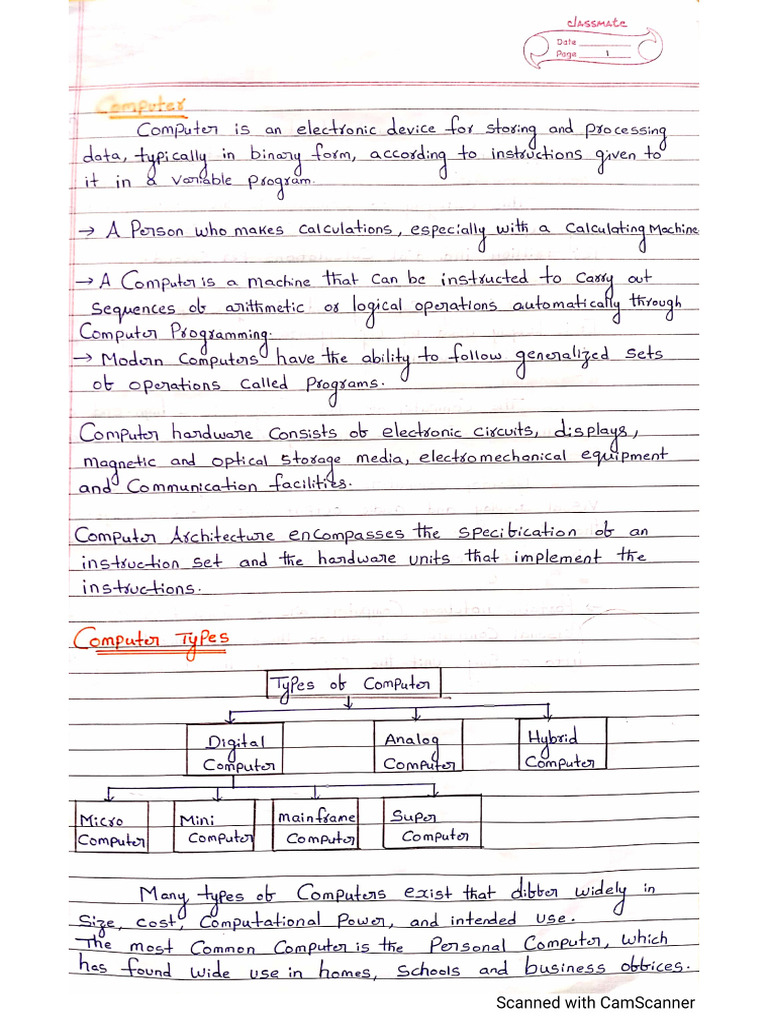 classmate
Date
Page 1
Computer
Computer is an electronic device for storing and processing
data, typically in binary form, according to instructions given to
it in a variable program.
→ A Person who makes calculations, especially with a Calculating Machine
→ A Computer is a machine that can be instructed to carry out
sequences of arithmetic or logical operations automatically through
Computer Programming.
→ Modern Computers have the ability to follow generalized sets
of operations called Programs.
Computer hardware consists of electronic circuits, displays,
magnetic and optical storage media, electromechanical equipment
and Communication facilities.
Computer Architecture encompasses the specification of an
instruction set and the hardware units that implement the
instructions.
Computer Types
Types of Computer
Digital Analog Hybrid
Computer Computer Computer
Micro Mini mainframe Super
Computer Computer Computer Computer
Many types of Computers exist that differ widely in
Size, cost, Computational Power, and intended use.
The most Common Computer is the Personal Computer, which
has found wide use in homes, Schools and business offices.
Scanned with CamScanner